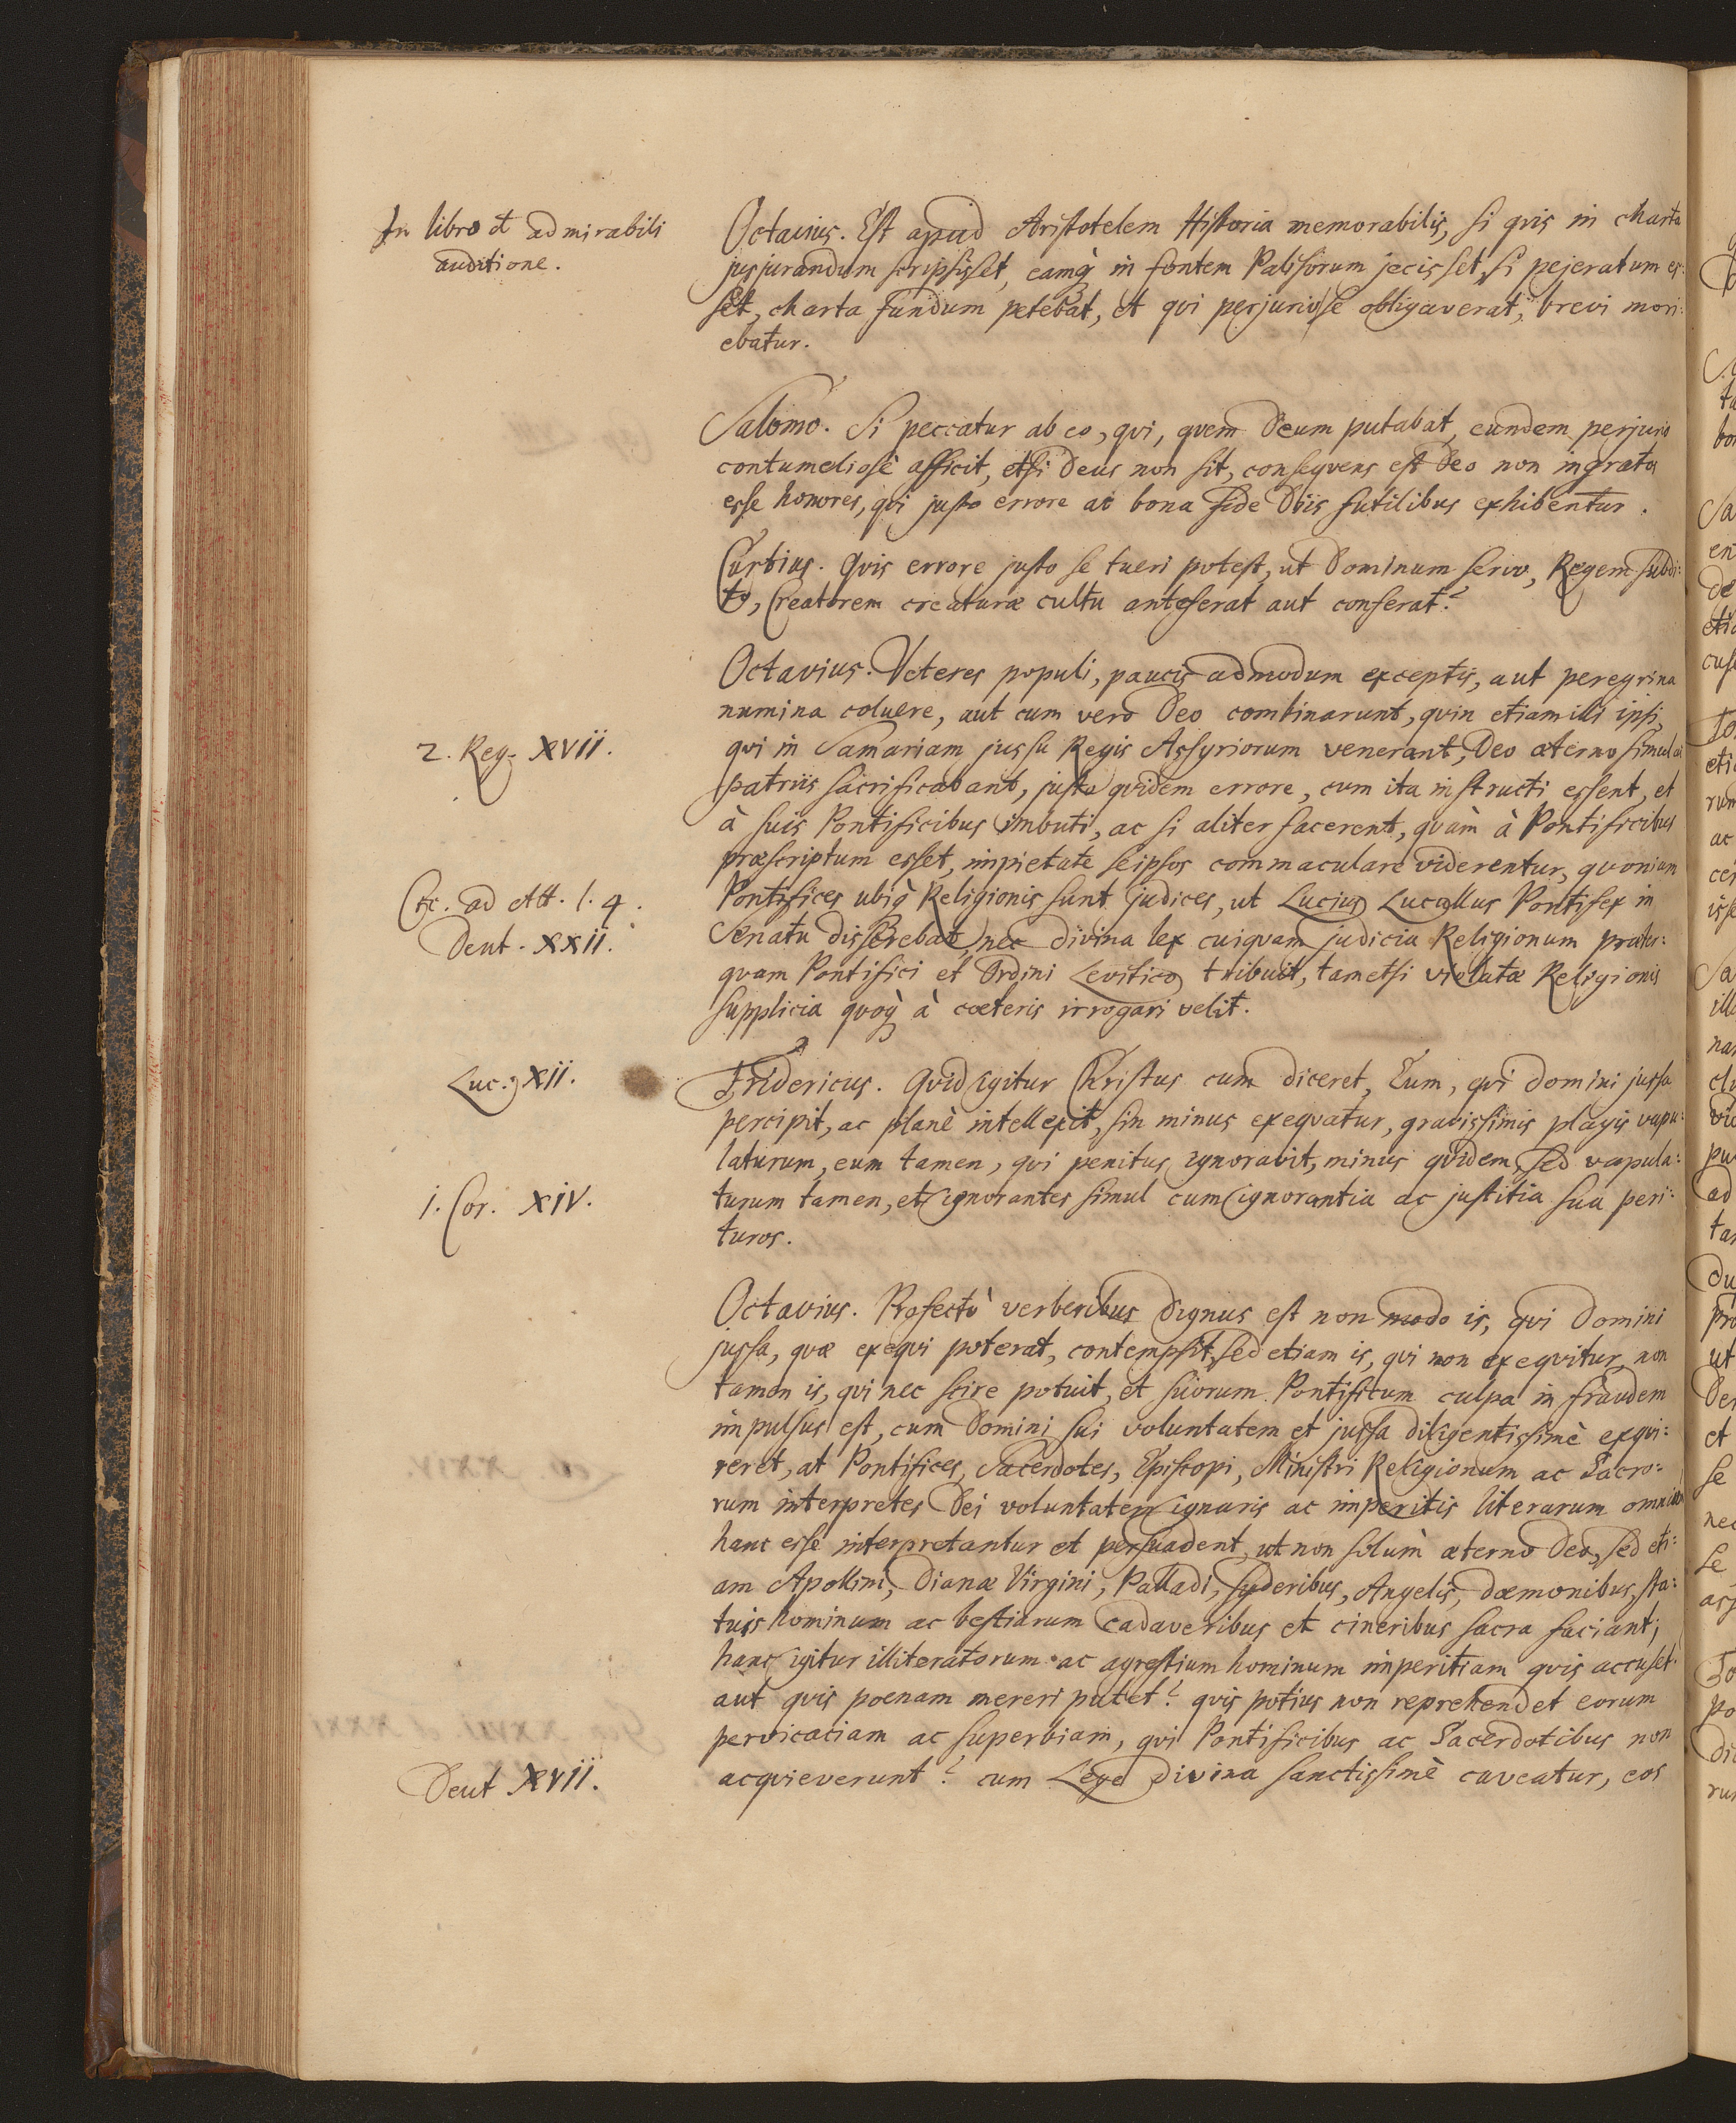 In libro et admirabili
auditione.
Octavius. Est apud Aristotelem Historia memorabilis, si qvis in charta
jusjurandum scripsisset, eamq; in fontem Palisorum jecisset, si pejeratum es:
set, charta fundum petebat, et qvi perjurio se obligaverat, brevi mori:
ebatur.
Salomo. Si peccatur ab eo, qvi, qvem Deum putabat, eundem perjurio
contumeliosè afficit, etsi Deus non sit, conseqvens est Deo non ingrata
esse honores, qvi justo errore ac bona fide Diis futilibus exhibentur.
Curtius. Qvis errore justo se tueri potest, ut Dominum servo, Regem subdi:
to, Creatorem creaturæ cultu anteferat aut conferat?
Octavius. Veteres populi, paucis admodum exceptis, aut peregrina
numina coluere, aut cum vero Deo combinarunt, qvin etiam illi ipsi,
2. Reg. XVII.
qvi in Samariam jussu Regis Assyriorum venerant, Deo æterno simul ac
patriis sacrificabant, justo qvidem errore, cum ita instructi essent, et
à suis Pontificibus imbuti, ac si aliter facerent, qvàm à Pontificibus
præscriptum esset, impietate seipsos commaculare viderentur, qvoniam
Cic. ad Att. l. 4.
Pontifices ubiq; Religionis sunt judices, ut Lucius Lucullus Pontifex in
Deut. XXII.
Senatu disserebat, nec divina lex cuiqvam judicia Religionum præter:
qvam Pontifici et Ordini Levitico tribuit, tametsi violatæ Religionis
supplicia qvoq; à cæteris irrogari velit.
Luc. XII.
Fridericus. Qvid igitur Christus cum diceret, Eum, qvi domini jussa
percipit, ac planè intellexit, sin minus exeqvatur, gravissimis plagis vapu:
laturum, eum tamen, qvi penitus ignoravit, minus qvidem, sed vapula:
1. Cor. XIV.
turum tamen, et ignorantes simul cum ignorantia ac justitia sua peri:
turos.
Octavius. Profectò verberibus dignus est non modo is, qvi Domini
jussa, qvæ exeqvi poterat, contempsit, sed etiam is, qvi non exeqvitur, non
tamen is, qvi nec scire potuit, et suorum Pontificum culpa in fraudem
impulsus est, cum Domini sui voluntatem et jussa diligentissimè exqvi:
reret, at Pontifices, Sacerdotes, Episcopi, Ministri Religionum ac Sacro:
rum interpretes Dei voluntatem ignaris ac imperitis literarum omnium
hanc esse interpretantur et persuadent, ut non solùm æterno Deo, sed eti:
am Apollini, Dianæ Virgini, Palladi, syderibus, Angelis, dæmonibus, sta:
tuis hominum ac bestiarum cadaveribus et cineribus sacra faciant;
hanc igitur illiteratorum ac agrestium hominum imperitiam qvis accuset.
aut qvis poenam mereri putet? qvis potius non reprehendet eorum
pervicaciam ac superbiam, qvi Pontificibus ac Sacerdotibus non
Deut XVII.
acqvieverunt? cum Lege divina sanctissimè caveatur, eos